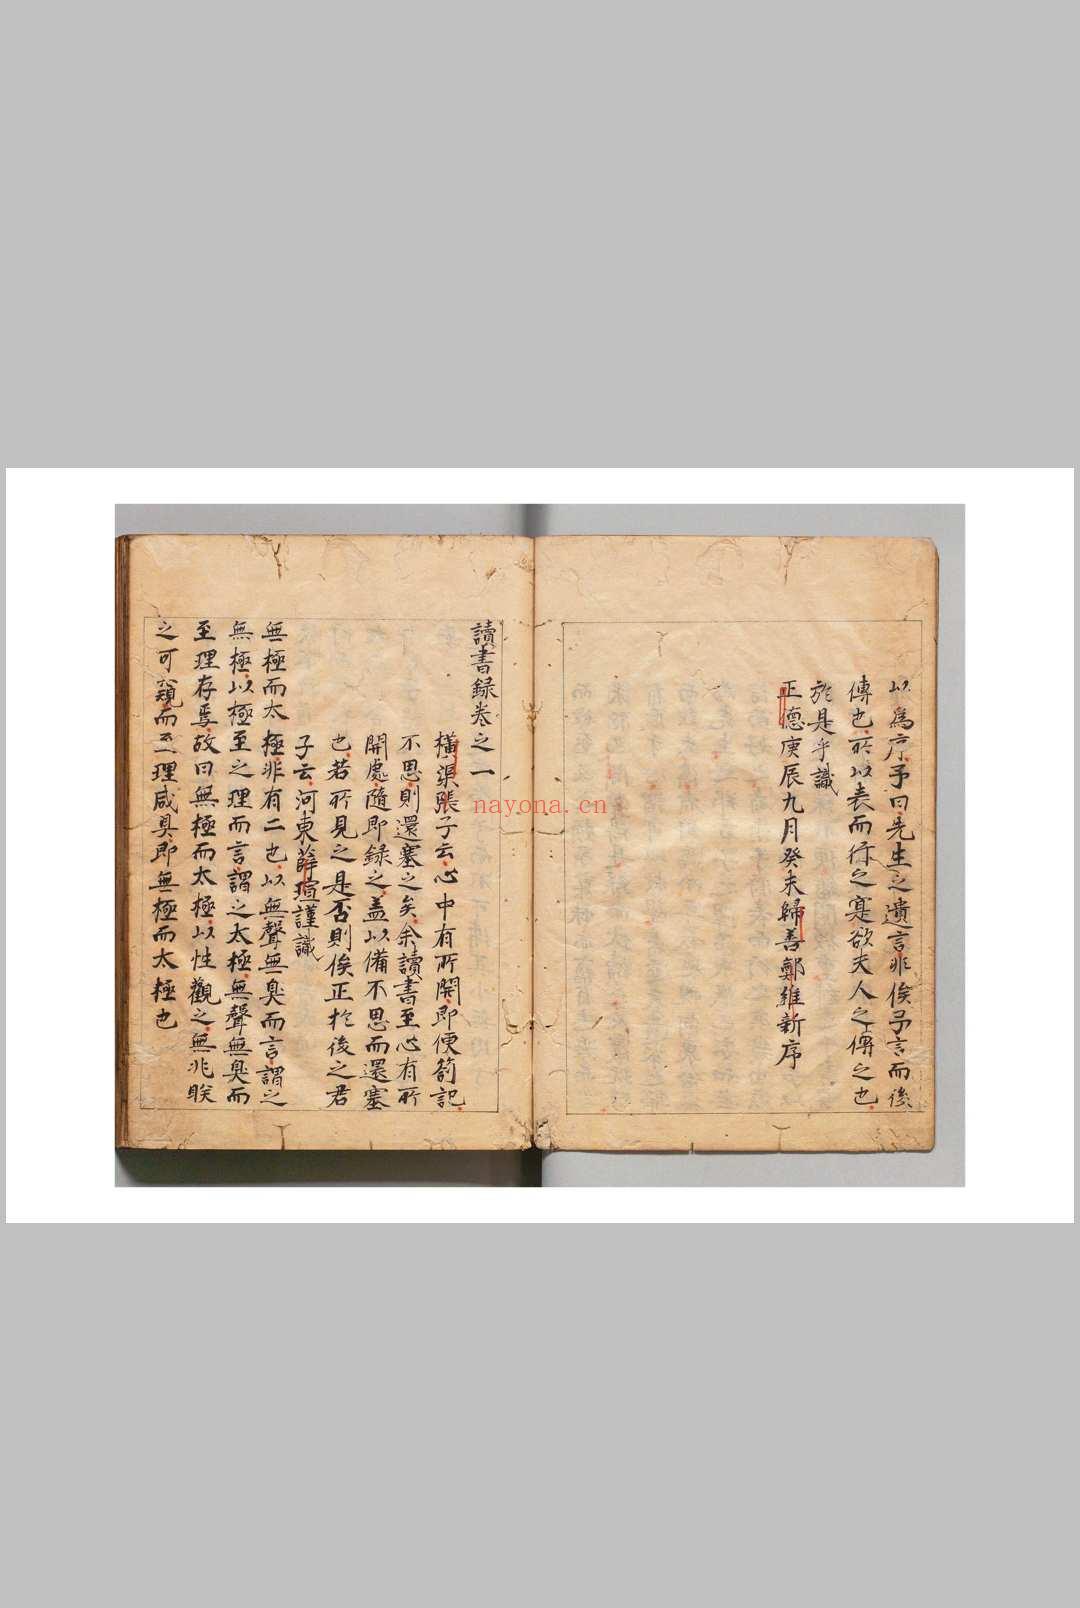 以為序予曰先生之遺言非俟予言而後
傳也所以表而行之寔欲夫人之傳之也
於是乎識
正德庚辰九月癸未歸善鄭維新序
讀書録卷之一
橫渠張子云心中有所開即便劄記
不思則還塞之矣余讀書至心有所
開處隨即録之盖以備不思而還塞
也若所見之是否則俟正扵後之君
子云河東薛瑄謹識
無極而太極非有二也以無聲無臭而言謂之
無極以極至之理而言謂之太極無聲無臭而
至理存焉故曰無極而太極以性觀之無兆眹
之可窺而至理咸具即無極而太極也
nayona.cn